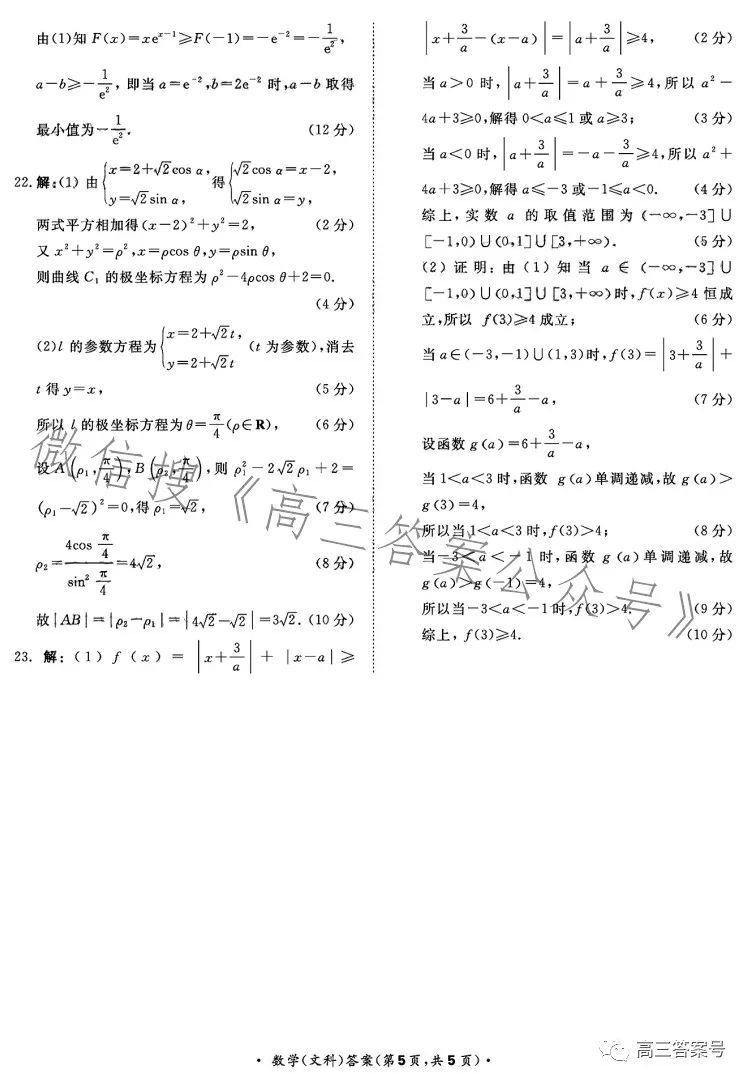 由(1)知 F(x)=xeˣ⁻¹≥F(-1)=-e⁻²=-1/e²,
a-b≥-1/e²,即当 a=e⁻²,b=2e⁻² 时,a-b 取得
最小值为-1/e². (12分)
22.解:(1)由{x=2+√2cos α, y=√2sin α, 得{√2cos α=x-2, √2sin α=y,
两式平方相加得(x-2)²+y²=2, (2分)
又 x²+y²=ρ²,x=ρcos θ,y=ρsin θ,
则曲线 C₁ 的极坐标方程为 ρ²-4ρcos θ+2=0.
(4分)
(2)l 的参数方程为{x=2+√2t, y=2+√2t (t 为参数),消去
t 得 y=x, (5分)
所以 l 的极坐标方程为 θ=π/4(ρ∈R), (6分)
设 A(ρ₁,π/4),B(ρ₂,π/4),则 ρ₁²-2√2ρ₁+2=
(ρ₁-√2)²=0,得 ρ₁=√2, (7分)
ρ₂=4cos π/4 / sin² π/4=4√2, (8分)
故|AB|=|ρ₂-ρ₁|=|4√2-√2|=3√2. (10分)
23. 解:(1) f(x)=|x+3/a|+|x-a|≥
|x+3/a-(x-a)|=|a+3/a|≥4, (2分)
当 a>0 时,|a+3/a|=a+3/a≥4,所以 a²-
4a+3≥0,解得 0<a≤1 或 a≥3; (3分)
当 a<0 时,|a+3/a|=-a-3/a≥4,所以 a²+
4a+3≥0,解得 a≤-3 或-1≤a<0. (4分)
综上,实数 a 的取值范围为(-∞,-3]∪
[-1,0)∪(0,1]∪[3,+∞). (5分)
(2)证明:由(1)知当 a∈(-∞,-3]∪
[-1,0)∪(0,1]∪[3,+∞)时,f(x)≥4 恒成
立,所以 f(3)≥4 成立; (6分)
当 a∈(-3,-1)∪(1,3)时,f(3)=|3+3/a|+
|3-a|=6+3/a-a, (7分)
设函数 g(a)=6+3/a-a,
当 1<a<3 时,函数 g(a)单调递减,故 g(a)>
g(3)=4,
所以当 1<a<3 时,f(3)>4; (8分)
当-3<a<-1 时,函数 g(a)单调递减,故
g(a)>g(-1)=4,
所以当-3<a<-1 时,f(3)>4. (9分)
综上,f(3)≥4. (10分)
微信搜《高三答案公众号》
·数学(文科)答案(第5页,共5页)·
高三答案号